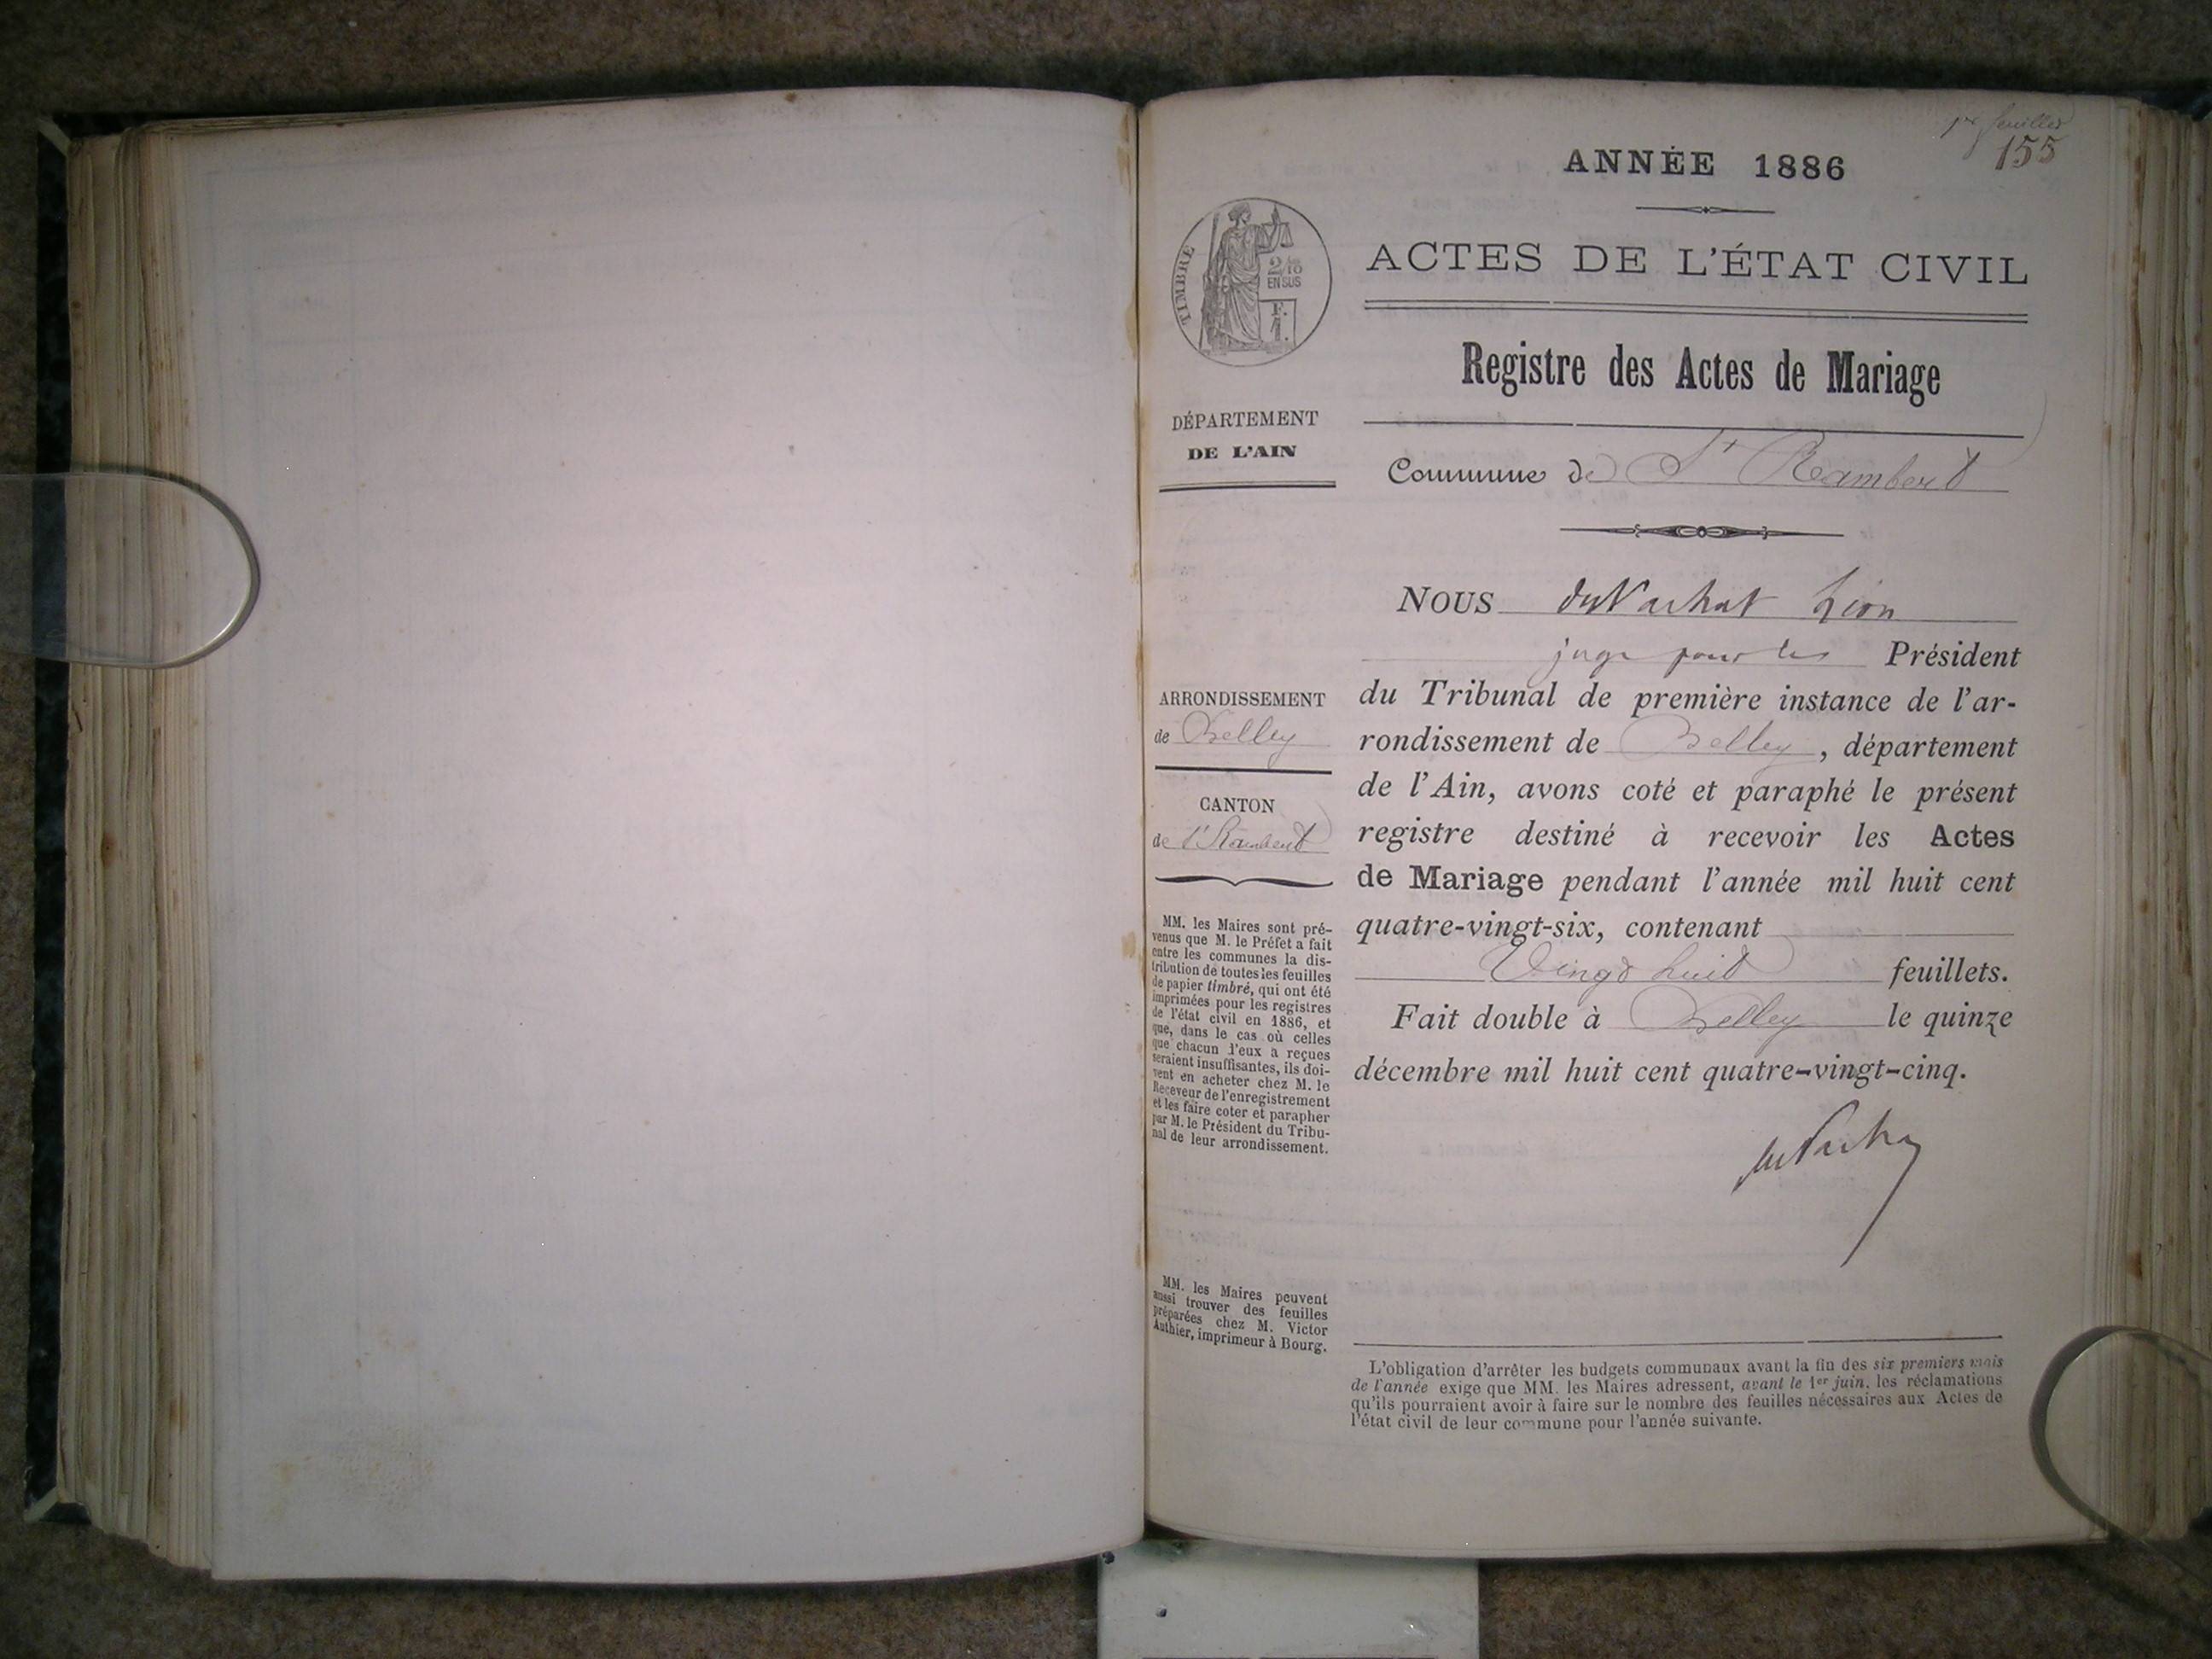 1er feuillet
155
ANNÉE 1886
ACTES DE L'ÉTAT CIVIL
Registre des Actes de Mariage
Commune de St Rambert
TIMBRE
2/10
EN SUS
F.
1.
DÉPARTEMENT
DE L'AIN
ARRONDISSEMENT
de Belley
CANTON
de St Rambert
MM. les Maires sont pré-
venus que M. le Préfet a fait
entre les communes la dis-
tribution de toutes les feuilles
de papier timbré, qui ont été
imprimées pour les registres
de l'état civil en 1886, et
que, dans le cas où celles
que chacun d'eux a reçues
seraient insuffisantes, ils doi-
vent en acheter chez M. le
Receveur de l'enregistrement
et les faire coter et parapher
par M. le Président du Tribu-
nal de leur arrondissement.
MM. les Maires peuvent
aussi trouver des feuilles
préparées chez M. Victor
Authier, imprimeur à Bourg.
NOUS Léon
juge pour le Président
du Tribunal de première instance de l'ar-
rondissement de Belley, département
de l'Ain, avons coté et paraphé le présent
registre destiné à recevoir les Actes
de Mariage pendant l'année mil huit cent
quatre-vingt-six, contenant
Vingt huit feuillets.
Fait double à Belley le quinze
décembre mil huit cent quatre-vingt-cinq.
L'obligation d'arrêter les budgets communaux avant la fin des six premiers mois
de l'année exige que MM. les Maires adressent, avant le 1er juin, les réclamations
qu'ils pourraient avoir à faire sur le nombre des feuilles nécessaires aux Actes de
l'état civil de leur commune pour l'année suivante.